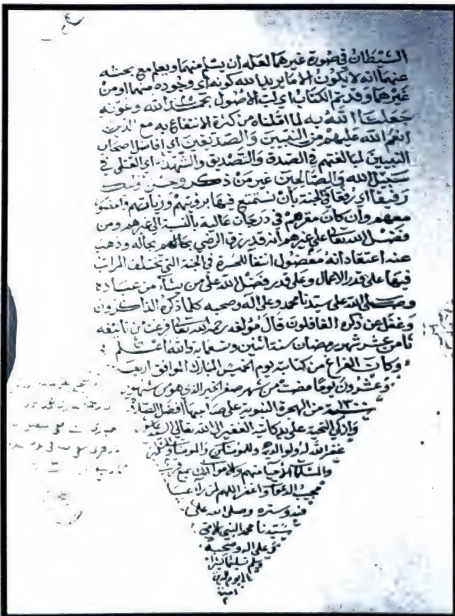 الشيطان في صورة غيرهما لعلمه أن يسأمنهما ويعلم مع بحثه
عنهما أنه لا يكون إلا ما يريد الله كونه أي وجوده منهما أو من
غيرهما وقد تم الكتاب أولت الأصول بحمد الله وعونه
جعلنا الله به لما أملناه من كثرة الانتفاع به مع الذين
أنعم الله عليهم من النبيين والصديقين أي أفاضل أصحاب
النبيين لمبالغتهم في الصدق والتصديق والشهداء أي القتلى في
سبيل الله والصالحين غير من ذكر وحسن أولئك
رفيقا أي رفقا في الجنة بأن نستمتع فيها برؤيتهم وزيارتهم والحضور
معهم وإن كان مقرهم في درجات عالية بالنسبة إلى غيرهم ومن
فضل الله تعالى على غيرهم أنه قد رزق الرضى بحالهم بحاله وذهب
عنه اعتقاد أنه مفضول انتفاء للحسرة في الجنة التي تختلف المراتب
فيها على قدر الأعمال وعلى قدر فضل الله على من يشاء من عباده
وصلى الله على سيدنا محمد وعلى آله وصحبه كلما ذكره الذاكرون
وغفل عن ذكره الغافلون قال مؤلفه رحمه الله تعالى فرغت من تأليفه
ثامن عشر شهر رمضان سنة اثنتين وتسعماية والله أعلم
وكان الفراغ من كتابته يوم الخميس المبارك الموافق أربعة
وعشرون يوما مضت من شهر صفر الخير الذي هو من شهور
سنة ١٣٠ من الهجرة النبوية على صاحبها أفضل الصلاة
وأزكى التحية على يد كاتبه الفقير إلى الله تعالى
غفر الله له ولوالديه وللمسلمين
والمسلمات الأحياء منهم والأموات إنك سميع قريب
مجيب الدعوات واغفر اللهم لمن رأى عيبا
فسده وستره وصلى الله على
سيدنا محمد النبي الأمي
وعلى آله وصحبه
وسلم تسليما كثيرا
إلى يوم الدين